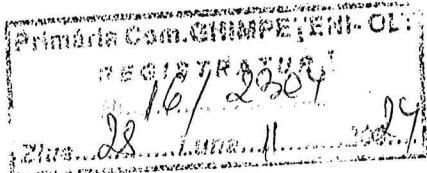 Primăria Com. GHIMPEȚENI-OLT
REGISTRATURĂ
Nr. 16/2304
Ziua...28......Luna....11........2024